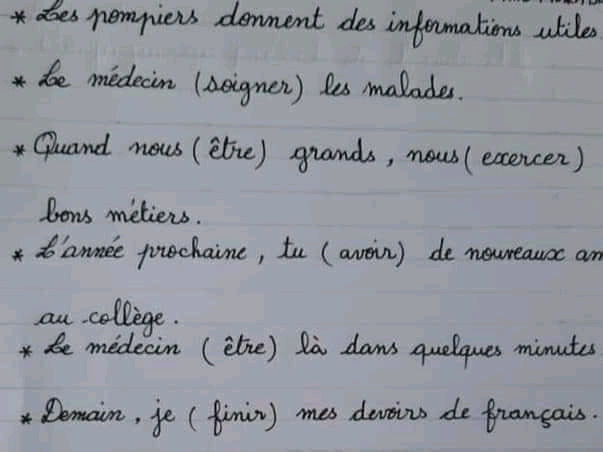 * Les pompiers donnent des informations utiles
* Le médecin (soigner) les malades.
* Quand nous (être) grands, nous (exercer)
bons métiers.
* L'année prochaine, tu (avoir) de nouveaux am
au collège.
* Le médecin (être) là dans quelques minutes
* Demain, je (finir) mes devoirs de français.